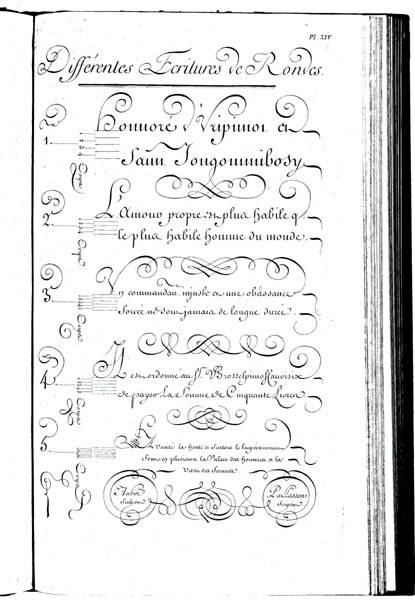 Pl. XIV
Différentes Ecritures de Rondes.
1. Corps
Honnoré
et
2. Corps
L'Amour propre est plus habile q.
le plus habile homme du monde.
3. Corps
Un commandem.t injuste et une obéissance
forcée ne sont jamais de longue durée.
4. Corps
Il est ordonné au Sr.
de payer la somme de Cinquante Livres
5. Corps
La Vanité la honte et surtout le tempérament
font en plusieurs la Valeur des hommes et la
Vertu des femmes
Aubin
Sculpsit
Paillasson
Scripsit